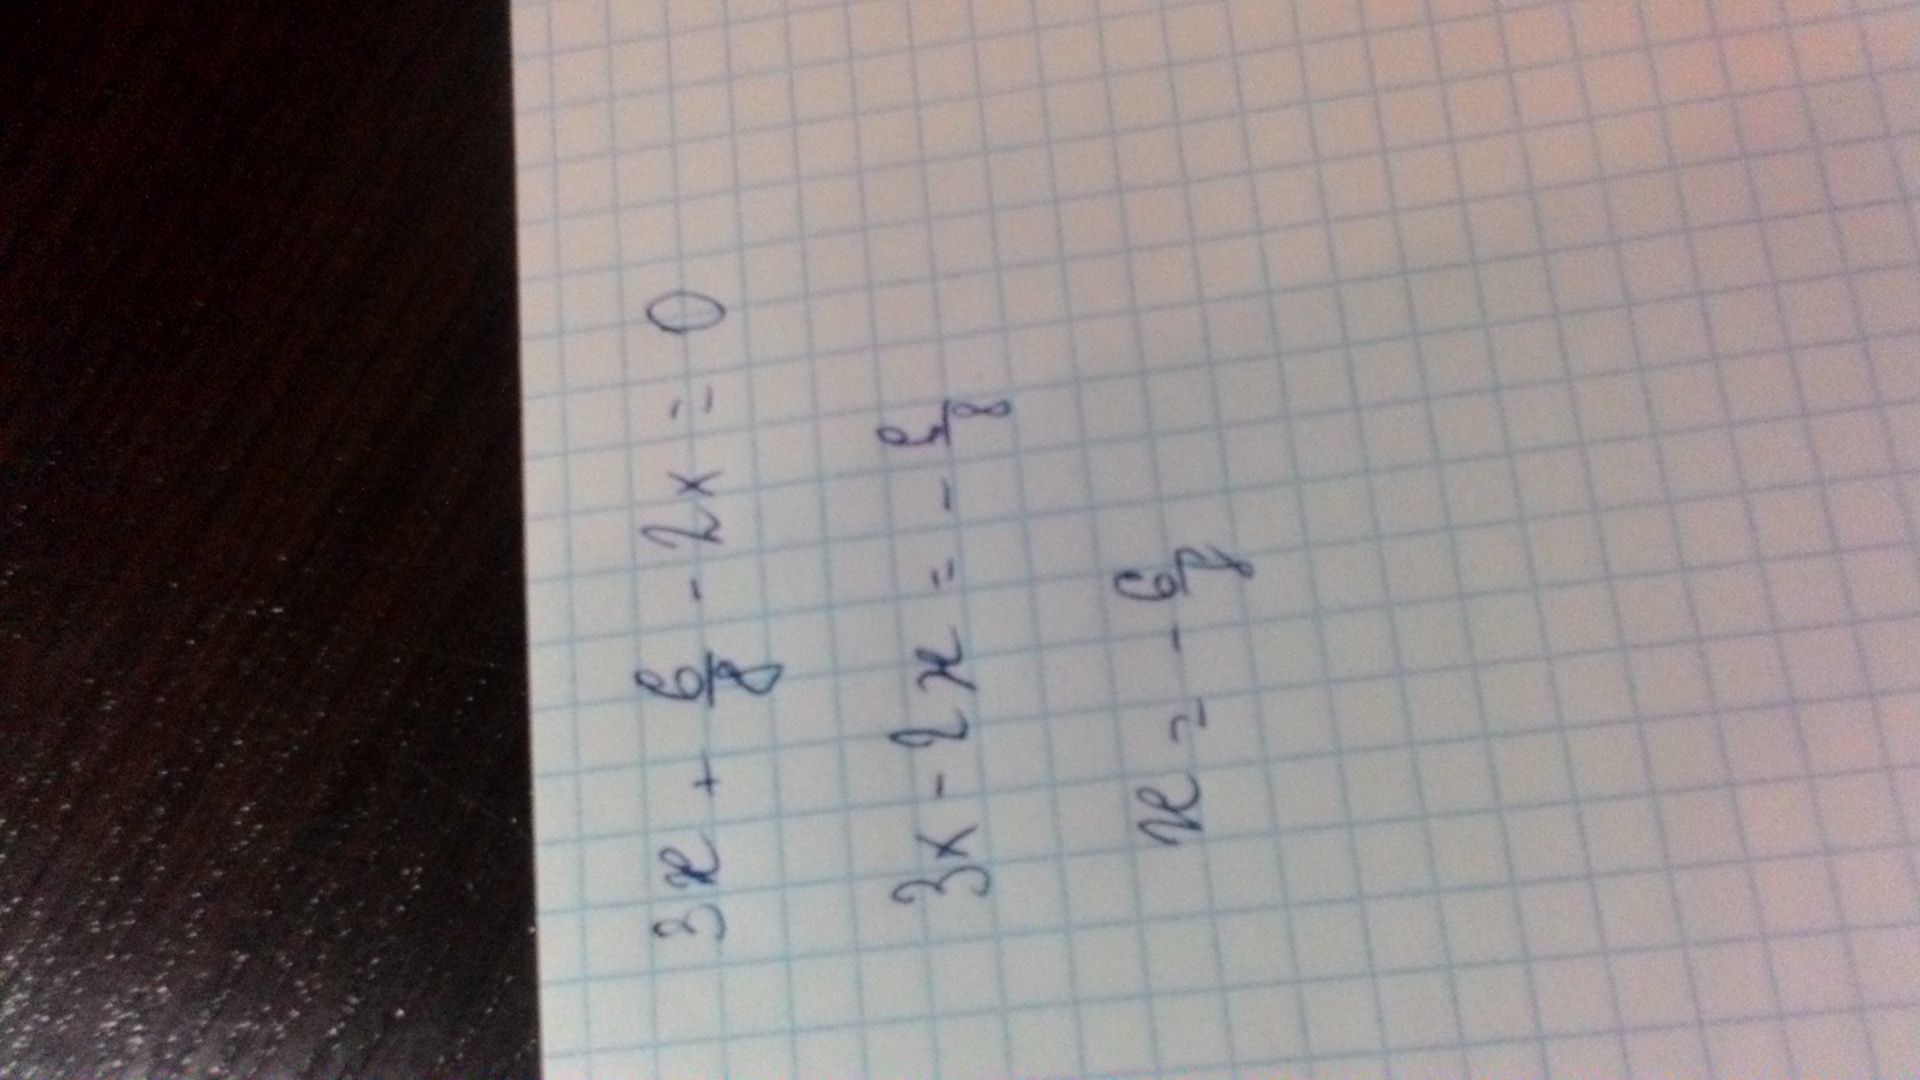 3x + 6/8 - 2x = 0
3x - 2x = - 6/8
x = - 6/8